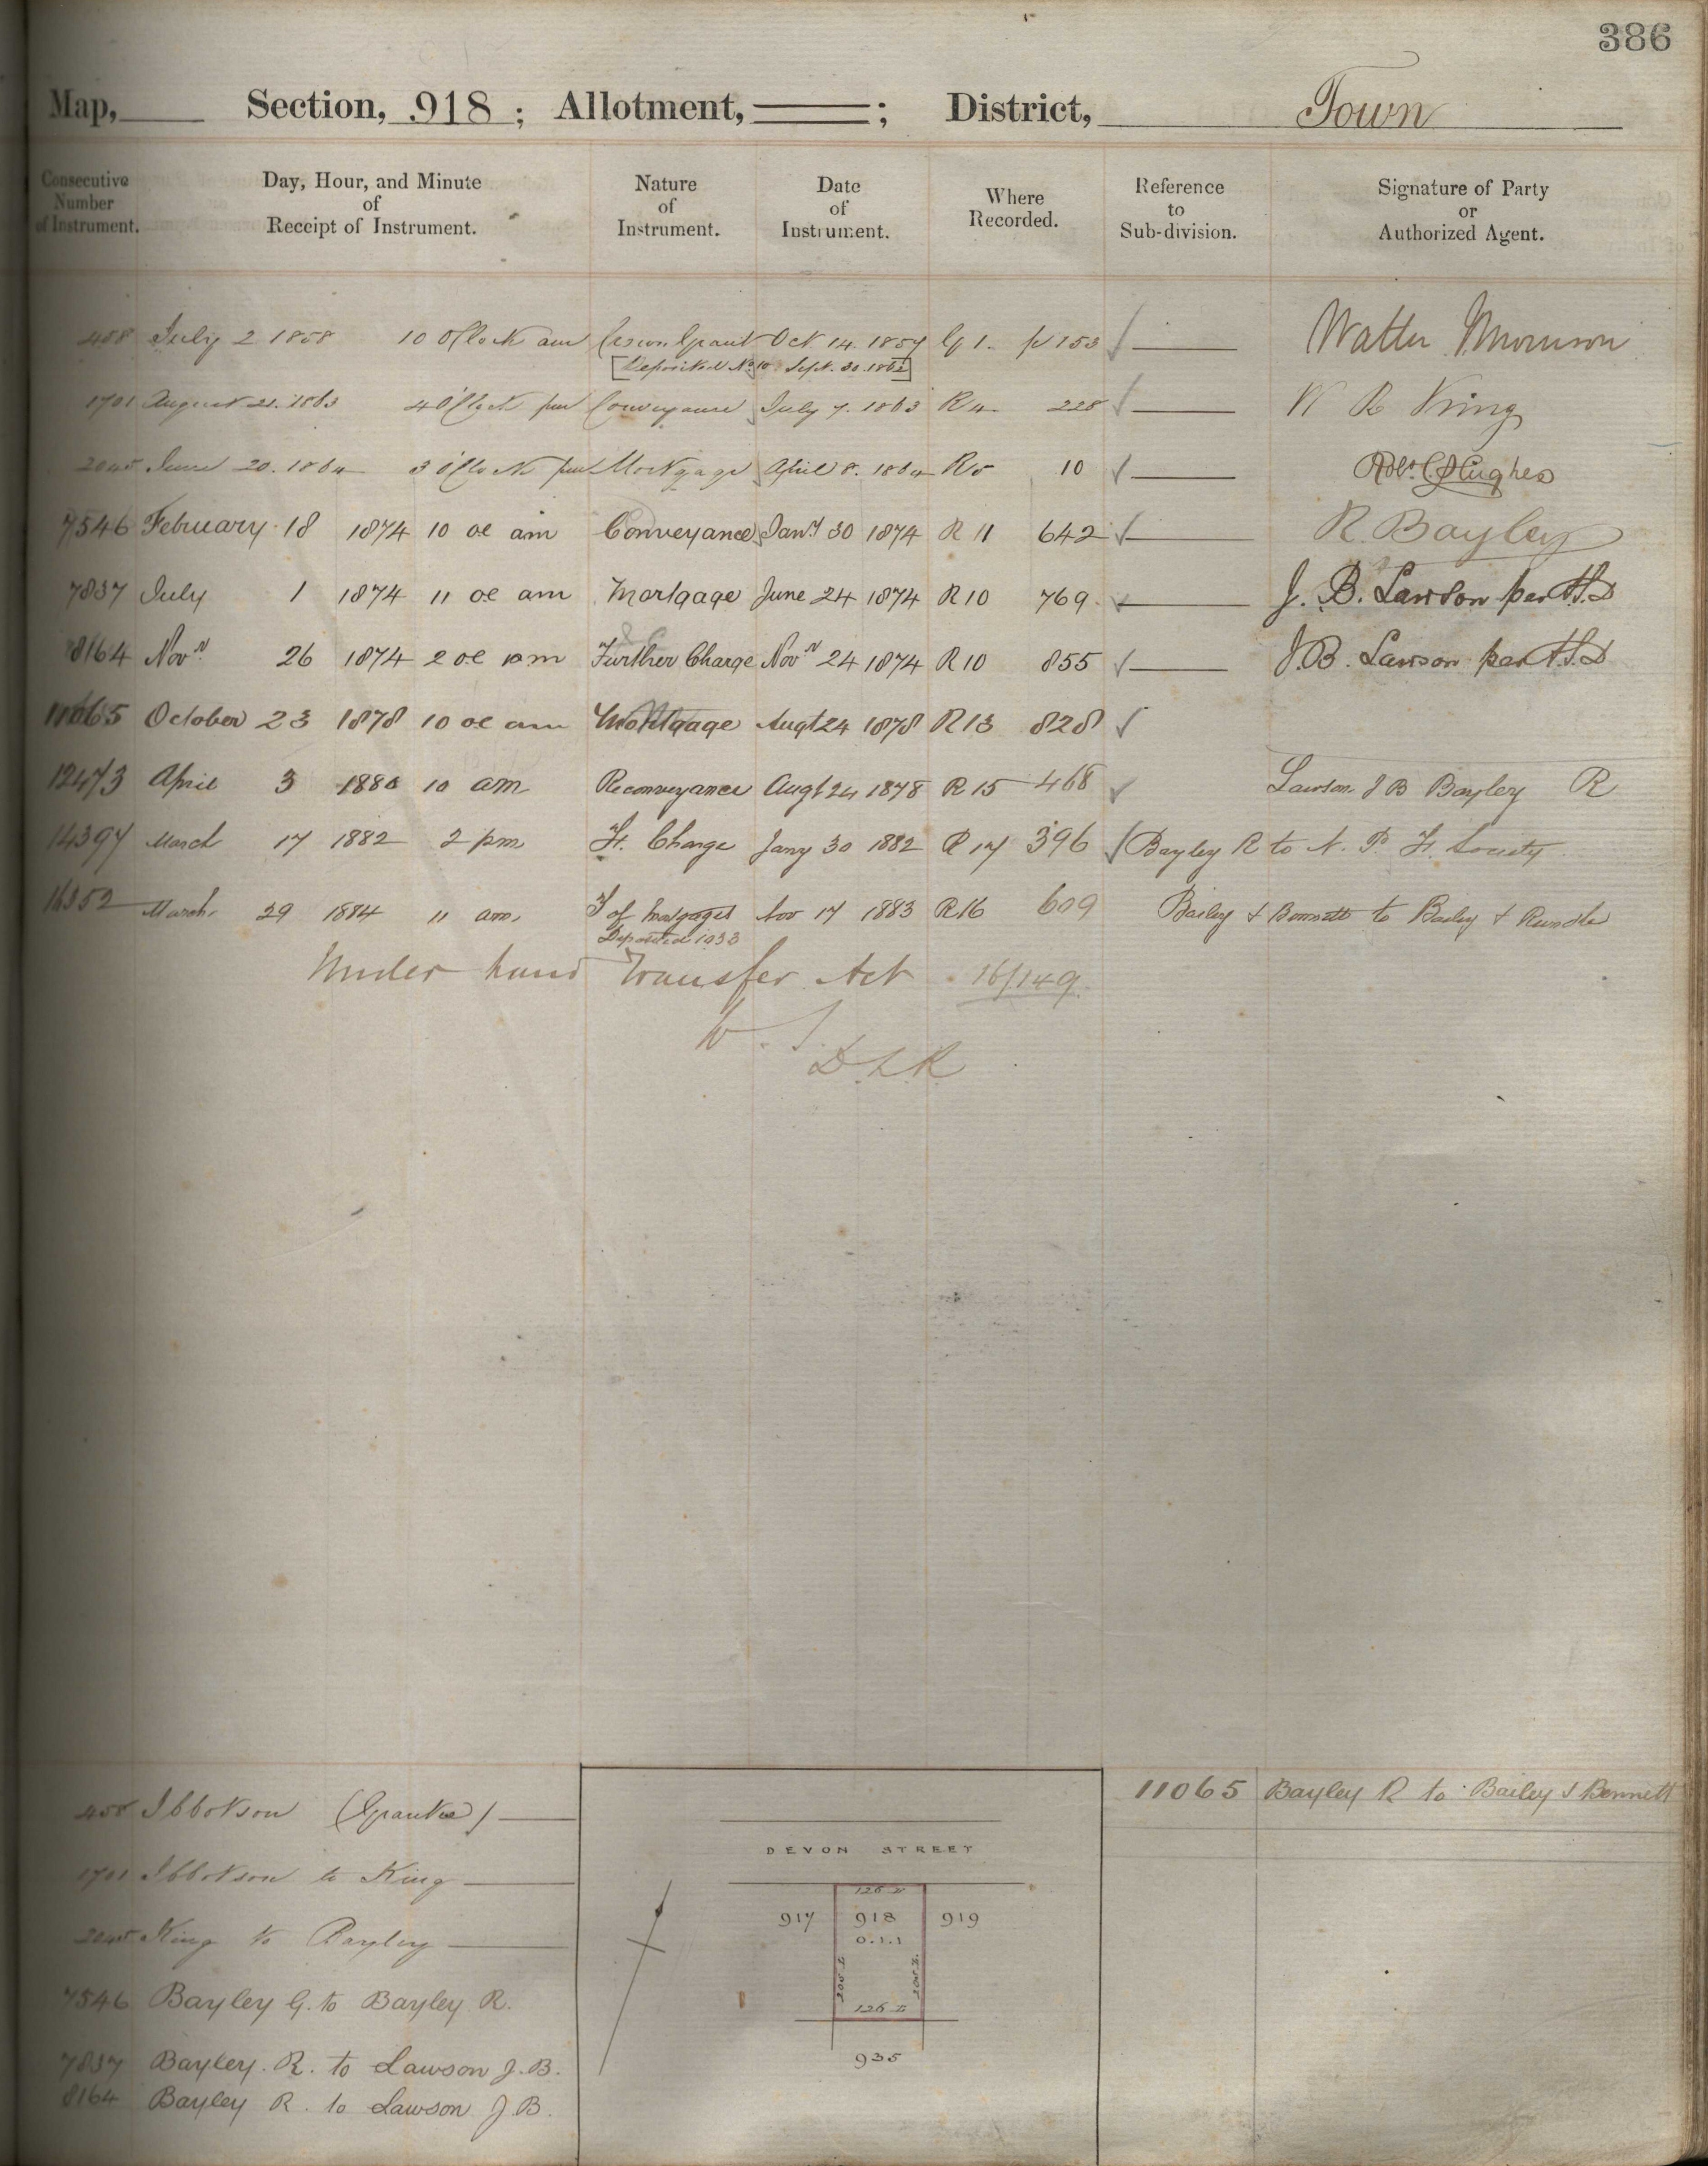 386
Map, Section, 918 ; Allotment, ; District, Town
Consecutive Number of Instrument. Day, Hour, and Minute of Receipt of Instrument. Nature of Instrument. Date of Instrument. Where Recorded. Reference to Sub-division. Signature of Party or Authorized Agent.
458 July 2 1858 10 O'Clock am Crown Grant Oct 14. 1857 G 1. p 153 Walter Morrison
[Deposited No 10 Sept. 30. 1862]
1701 August 21. 1863 4 O'Clock pm Conveyance July 7. 1863 R 4 228 W R King
2045 June 20. 1864 3 O'Clock pm Mortgage April 8. 1864 R 5 10 Robt. C. Hughes
7546 February 18 1874 10 oc am Conveyance Jany 30 1874 R 11 642 R. Bayley
7837 July 1 1874 11 oc am Mortgage June 24 1874 R 10 769 J. B. Lawson per
8164 Novr 26 1874 2 oc pm Further Charge Novr 24 1874 R 10 855 J. B. Lawson per
11065 October 23 1878 10 oc am Mortgage Augt 24 1878 R 13 828
12473 April 3 1880 10 am Reconveyance Augt 24 1878 R 15 468 Lawson J B Bayley R
14397 March 17 1882 2 pm Ft. Charge Jany 30 1882 R 17 396 Bayley R to N. P. F. Society
16352 March 29 1884 11 am. T of Mortgages Nov 17 1883 R 16 609 Bailey & Bennett to Bailey & Rundle
Deposited 1033
Under Land Transfer Act 16/149
W. J.
D L R
458 Ibbotson (Grantee)
1701 Ibbotson to King
2045 King to Bayley
7546 Bayley G. to Bayley R.
7837 Bayley. R. to Lawson J. B.
8164 Bayley R. to Lawson J. B.
DEVON STREET
126 L
917 918 919
0.1.1
205 L 205 L
126 L
935
11065 Bayley R to Bailey & Bennett